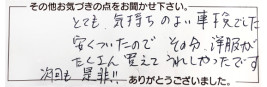 その他お気づきの点をお聞かせ下さい。
とても、気持ちのよい車検でした
安くついたので その分、洋服が
たくさん買えて うれしかったです
次回も 是非!!
ありがとうございました。